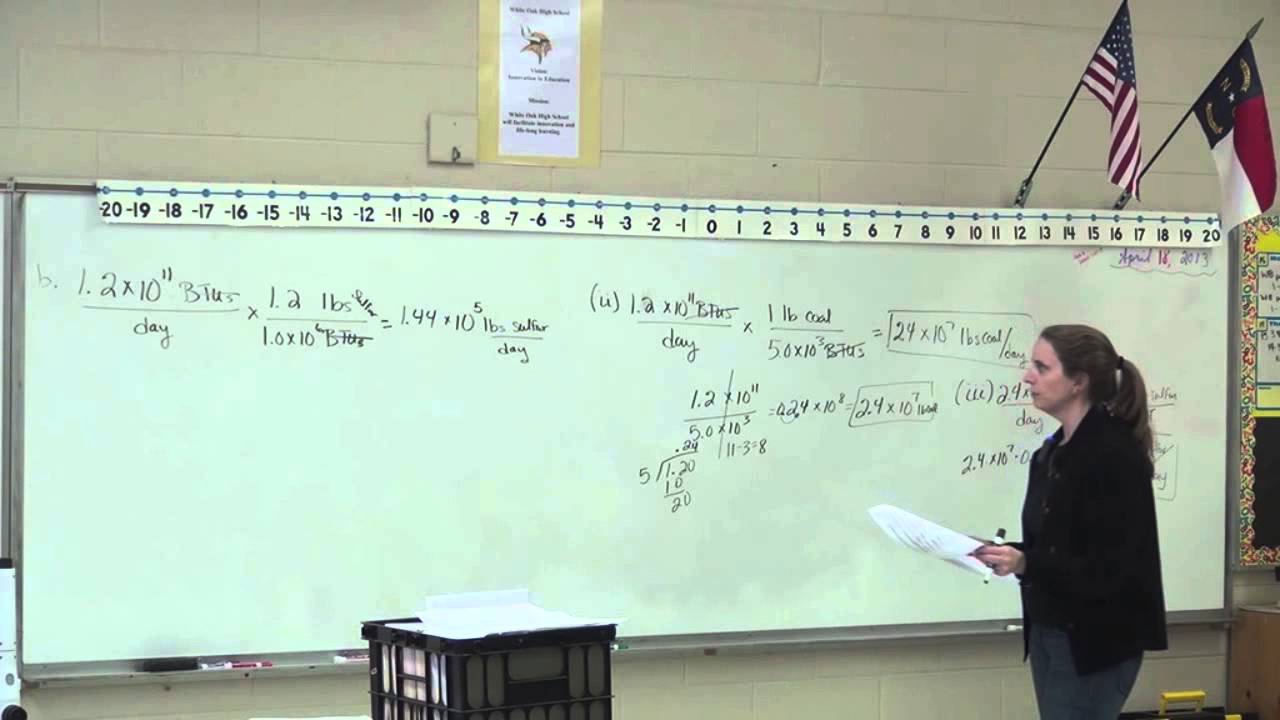 White Oak High School
Vision:
Innovation in Education
Mission:
White Oak High School
will facilitate innovation and
life-long learning
-20 -19 -18 -17 -16 -15 -14 -13 -12 -11 -10 -9 -8 -7 -6 -5 -4 -3 -2 -1 0 1 2 3 4 5 6 7 8 9 10 11 12 13 14 15 16 17 18 19 20
April 18, 2013
b. 1.2 × 10^11 BTUs / day × 1.2 lbs sulfur / 1.0 × 10^6 BTUs = 1.44 × 10^5 lbs sulfur / day
(ii) 1.2 × 10^11 BTUs / day × 1 lb coal / 5.0 × 10^3 BTUs = 2.4 × 10^7 lbs coal/day
1.2 × 10^11 / 5.0 × 10^3 = 0.24 × 10^8 = 2.4 × 10^7 lb coal
11-3=8
.24
5 1.20
10
20
(iii) 2.4 × / day sulfur
2.4 × 10^7 · 0
N